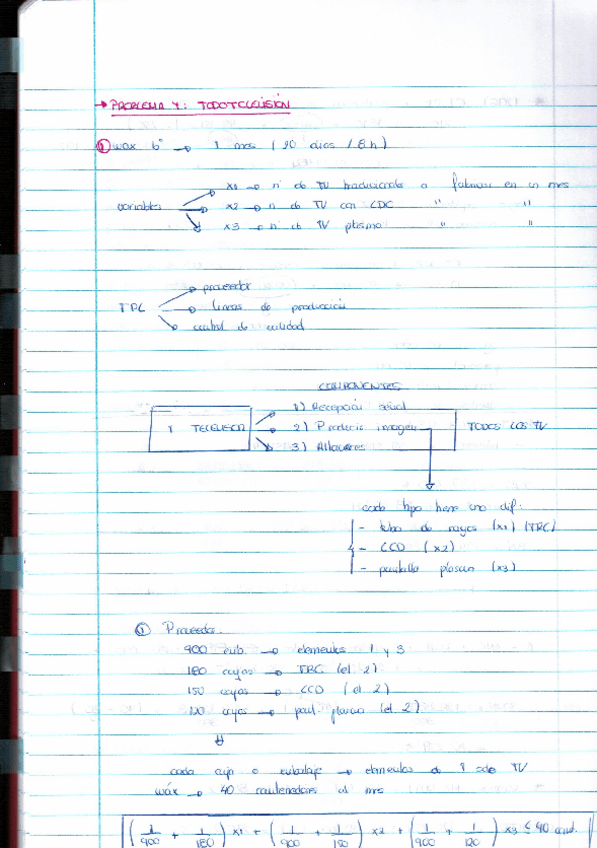 → PROBLEMA 4: TODOTELEVISIÓN
① max bº → 1 mes (20 días / 8 h)
variables
x1 → nº de TV tradicionales a fabricar en un mes
x2 → nº de TV con LCD " "
x3 → nº de TV plasma " "
→ proveedor
→ líneas de producción
→ control de calidad
COMPONENTES
1) Recepción señal
1 TELEVISOR → 2) Producir imagen TODOS LOS TV
3) Altavoces
cada tipo tiene uno dif:
- tubo de rayos (x1) (TRC)
- LCD (x2)
- pantalla plasma (x3)
① Proveedor.
900 emb. → elementos 1 y 3
180 cajas → TRC (el. 2)
150 cajas → LCD (el. 2)
120 cajas → pant. plasma (el. 2)
cada caja o embalaje → elementos de 1 solo TV
máx → 40 contenedores al mes
(1/900 + 1/180) x1 + (1/900 + 1/150) x2 + (1/900 + 1/120) x3 ≤ 40 cont.